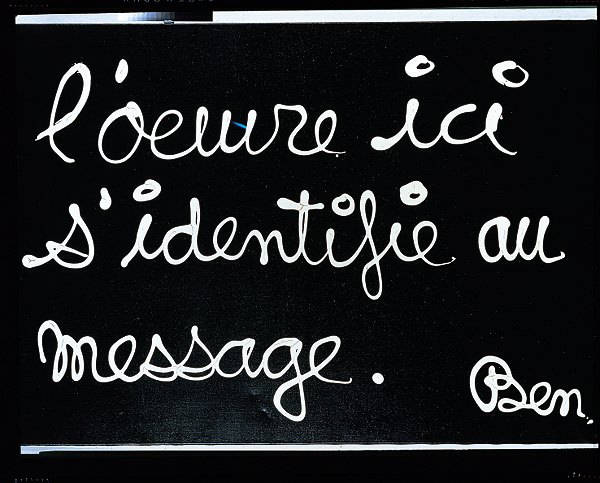 l'oeuvre ici
s'identifie au
message.
Ben.